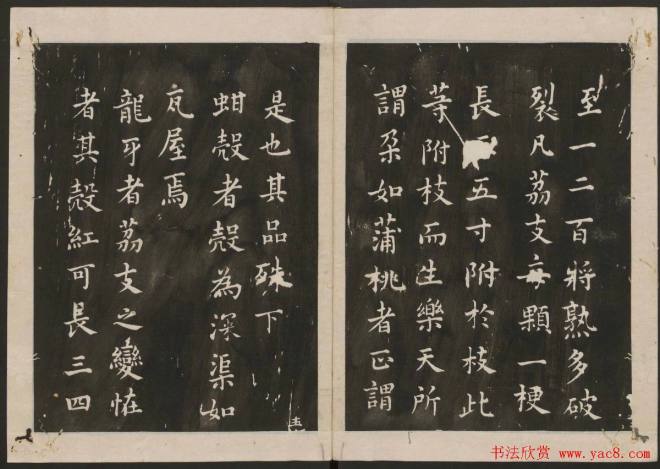 至一二百將熟多破
裂凡荔支每顆一梗
長 五寸附於枝此
等附枝而生樂天所
謂朶如蒲桃者正謂
是也其品殊下
蚶殼者殼為深渠如
瓦屋焉
龍牙者荔支之變怪
者其殼紅可長三四
书法欣赏 www.yac8.com